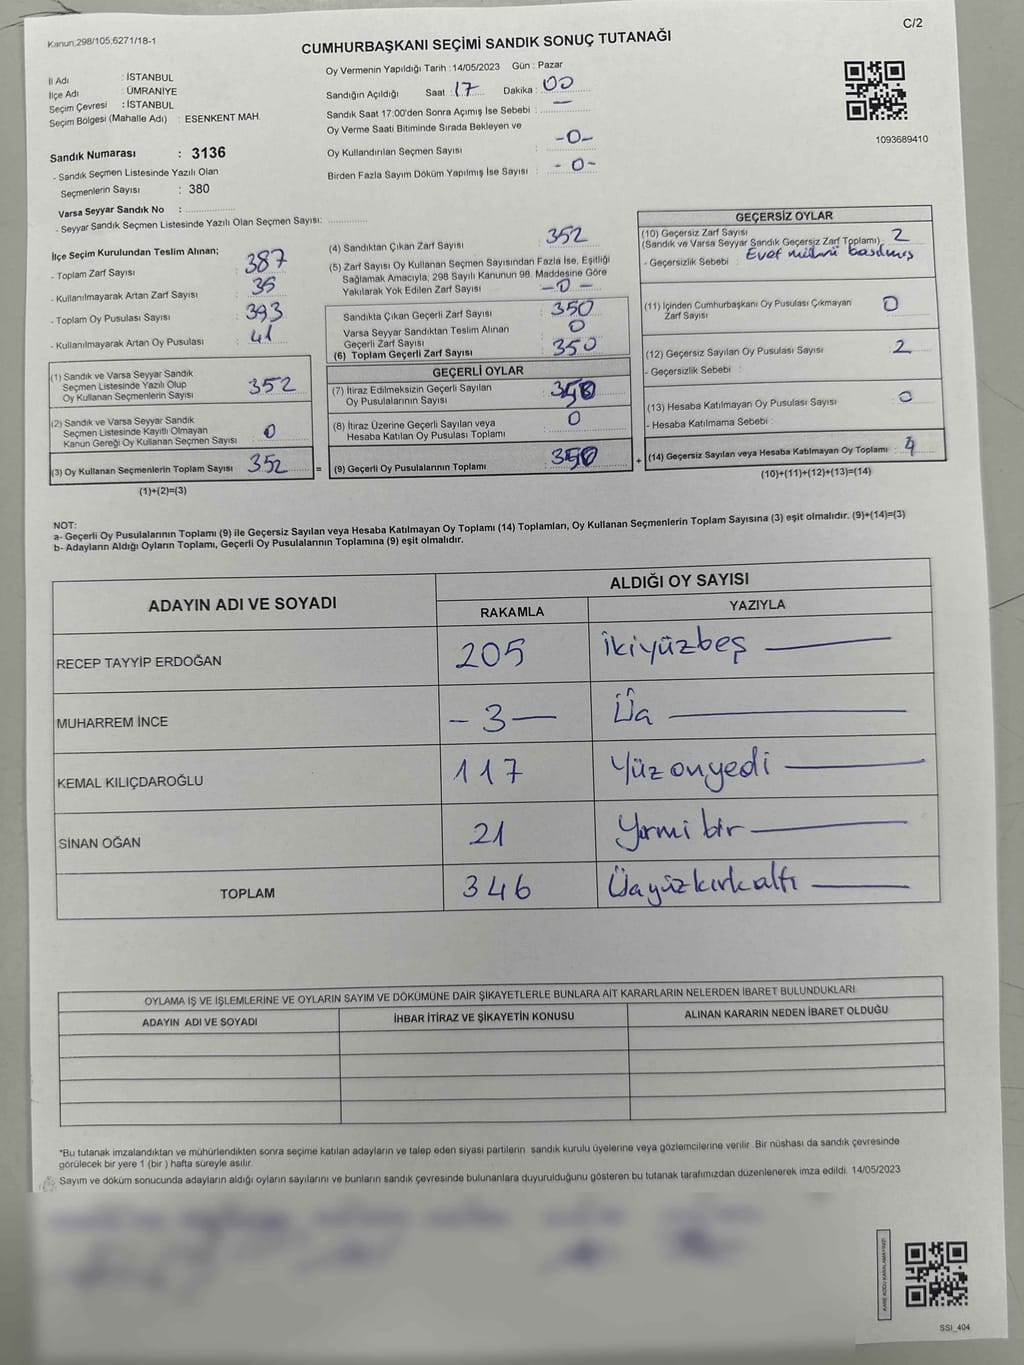 Kanun,298/105,6271/18-1
C/2
CUMHURBAŞKANI SEÇİMİ SANDIK SONUÇ TUTANAĞI
İl Adı : İSTANBUL
İlçe Adı : ÜMRANİYE
Seçim Çevresi : İSTANBUL
Seçim Bölgesi (Mahalle Adı) : ESENKENT MAH.
Sandık Numarası : 3136
- Sandık Seçmen Listesinde Yazılı Olan
Seçmenlerin Sayısı : 380
Varsa Seyyar Sandık No :
- Seyyar Sandık Seçmen Listesinde Yazılı Olan Seçmen Sayısı:
Oy Vermenin Yapıldığı Tarih :14/05/2023 Gün : Pazar
Sandığın Açıldığı Saat : 17 Dakika : 00
Sandık Saat 17:00'den Sonra Açımış İse Sebebi : —
Oy Verme Saati Bitiminde Sırada Bekleyen ve
Oy Kullandırılan Seçmen Sayısı : -0-
Birden Fazla Sayım Döküm Yapılmış İse Sayısı : -0-
1093689410
İlçe Seçim Kurulundan Teslim Alınan;
- Toplam Zarf Sayısı : 387
- Kullanılmayarak Artan Zarf Sayısı : 35
- Toplam Oy Pusulası Sayısı : 393
- Kullanılmayarak Artan Oy Pusulası : 41
(1) Sandık ve Varsa Seyyar Sandık
Seçmen Listesinde Yazılı Olup
Oy Kullanan Seçmenlerin Sayısı : 352
(2) Sandık ve Varsa Seyyar Sandık
Seçmen Listesinde Kayıtlı Olmayan
Kanun Gereği Oy Kullanan Seçmen Sayısı : 0
(3) Oy Kullanan Seçmenlerin Toplam Sayısı : 352
(1)+(2)=(3)
(4) Sandıktan Çıkan Zarf Sayısı : 352
(5) Zarf Sayısı Oy Kullanan Seçmen Sayısından Fazla İse, Eşitliği
Sağlamak Amacıyla; 298 Sayılı Kanunun 98. Maddesine Göre
Yakılarak Yok Edilen Zarf Sayısı : -0-
Sandıkta Çıkan Geçerli Zarf Sayısı : 350
Varsa Seyyar Sandıktan Teslim Alınan
Geçerli Zarf Sayısı : 0
(6) Toplam Geçerli Zarf Sayısı : 350
GEÇERLİ OYLAR
(7) İtiraz Edilmeksizin Geçerli Sayılan
Oy Pusulalarının Sayısı :
(8) İtiraz Üzerine Geçerli Sayılan veya
Hesaba Katılan Oy Pusulası Toplamı : 0
= (9) Geçerli Oy Pusulalarının Toplamı :
GEÇERSİZ OYLAR
(10) Geçersiz Zarf Sayısı
(Sandık ve Varsa Seyyar Sandık Geçersiz Zarf Toplamı) : 2
- Geçersizlik Sebebi : Evet mührü basılmış
(11) İçinden Cumhurbaşkanı Oy Pusulası Çıkmayan
Zarf Sayısı : 0
(12) Geçersiz Sayılan Oy Pusulası Sayısı : 2
- Geçersizlik Sebebi :
(13) Hesaba Katılmayan Oy Pusulası Sayısı : 0
- Hesaba Katılmama Sebebi :
+ (14) Geçersiz Sayılan veya Hesaba Katılmayan Oy Toplamı :
(10)+(11)+(12)+(13)=(14)
NOT:
a- Geçerli Oy Pusulalarının Toplamı (9) ile Geçersiz Sayılan veya Hesaba Katılmayan Oy Toplamı (14) Toplamları, Oy Kullanan Seçmenlerin Toplam Sayısına (3) eşit olmalıdır. (9)+(14)=(3)
b- Adayların Aldığı Oyların Toplamı, Geçerli Oy Pusulalarının Toplamına (9) eşit olmalıdır.
ADAYIN ADI VE SOYADI
ALDIĞI OY SAYISI
RAKAMLA YAZIYLA
RECEP TAYYİP ERDOĞAN 205 İkiyüzbeş
MUHARREM İNCE -3- Üç
KEMAL KILIÇDAROĞLU 117 Yüzonyedi
SİNAN OĞAN 21 Yirmi bir
TOPLAM 346 Üçyüzkırkaltı
OYLAMA İŞ VE İŞLEMLERİNE VE OYLARIN SAYIM VE DÖKÜMÜNE DAİR ŞİKAYETLERLE BUNLARA AİT KARARLARIN NELERDEN İBARET BULUNDUKLARI
ADAYIN ADI VE SOYADI İHBAR İTİRAZ VE ŞİKAYETİN KONUSU ALINAN KARARIN NEDEN İBARET OLDUĞU
*Bu tutanak imzalandıktan ve mühürlendikten sonra seçime katılan adayların ve talep eden siyasi partilerin sandık kurulu üyelerine veya gözlemcilerine verilir. Bir nüshası da sandık çevresinde
görülecek bir yere 1 (bir ) hafta süreyle asılır.
Sayım ve döküm sonucunda adayların aldığı oyların sayılarını ve bunların sandık çevresinde bulunanlara duyurulduğunu gösteren bu tutanak tarafımızdan düzenlenerek imza edildi. 14/05/2023
SSI_404